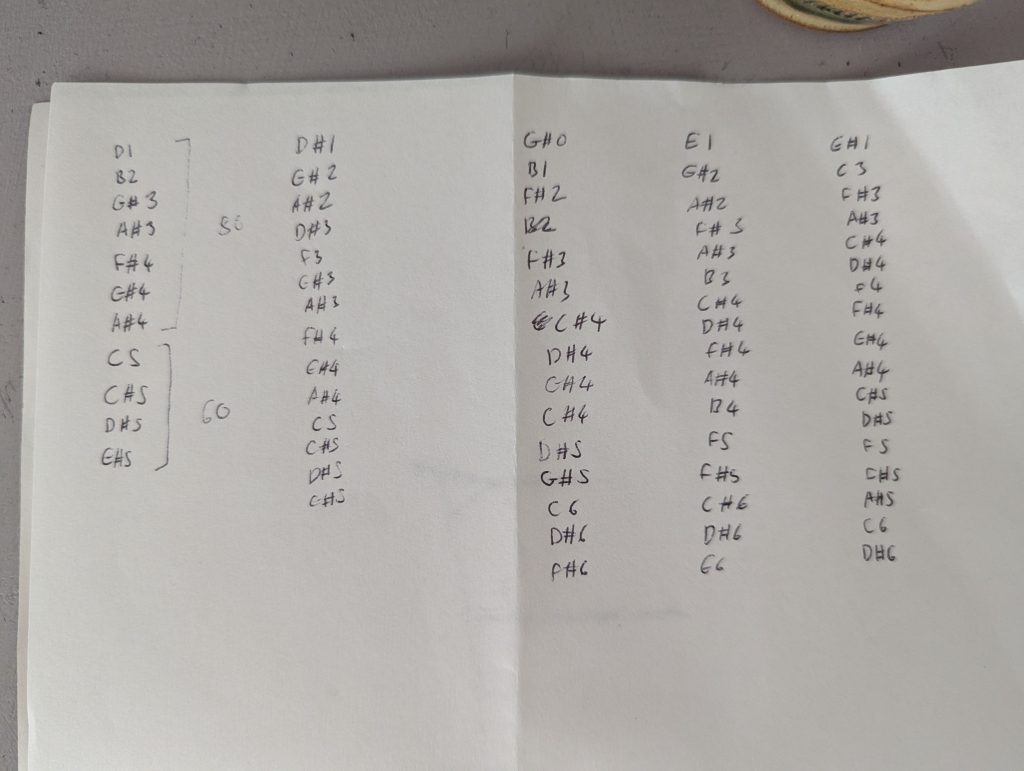 D1
B2
G#3
A#3
F#4
G#4
A#4
80
C5
C#5
D#5
G#5
60
D#1
G#2
A#2
D#3
F3
G#3
A#3
F#4
G#4
A#4
C5
C#5
D#5
G#5
G#0
B1
F#2
B2
F#3
A#3
C#4
D#4
G#4
C#4
D#5
G#5
C6
D#6
F#6
E1
G#2
A#2
F#3
A#3
B3
C#4
D#4
F#4
A#4
B4
F5
F#5
C#6
D#6
E6
G#1
C3
F#3
A#3
C#4
D#4
F4
F#4
G#4
A#4
C#5
D#5
F5
A#5
C6
D#6